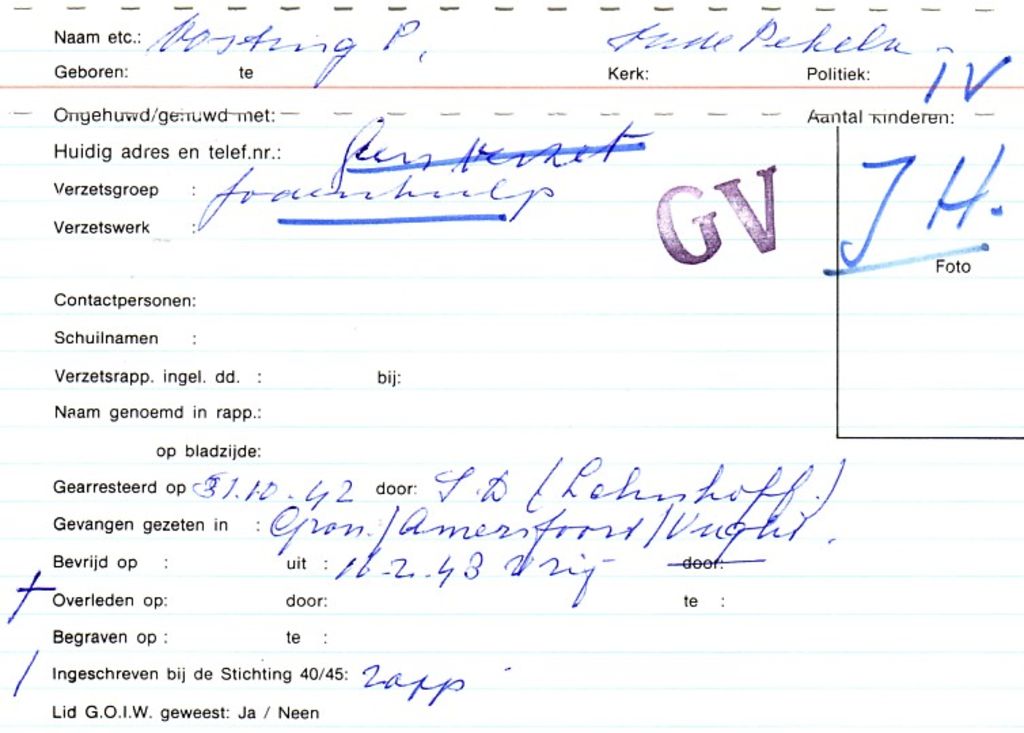 Naam etc.: Oosting P. Oude Pekela
Geboren: te Kerk: Politiek: IV
Ongehuwd/gehuwd met: Aantal kinderen:
Huidig adres en telef.nr.: Geen Verzet
Verzetsgroep : Jodenhulp
Verzetswerk :
GV
J H.
Foto
Contactpersonen:
Schuilnamen :
Verzetsrapp. ingel. dd. : bij:
Naam genoemd in rapp.:
op bladzijde:
Gearresteerd op 31.10.42 door: S.D (Lehnhoff)
Gevangen gezeten in : Gron./Amersfoort/Vught.
Bevrijd op : uit : 16-2-43 vrij door:
† Overleden op: door: te :
Begraven op : te :
/ Ingeschreven bij de Stichting 40/45: rapp
Lid G.O.I.W. geweest: Ja / Neen